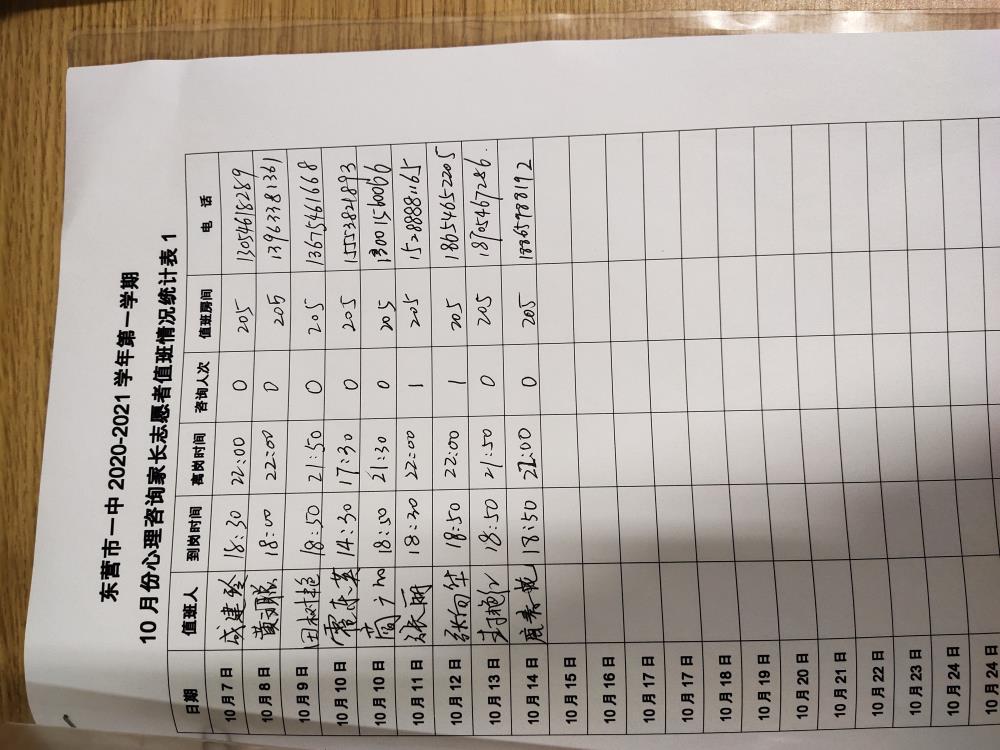 东营市一中 2020-2021 学年第一学期
10 月份心理咨询家长志愿者值班情况统计表 1
日期 值班人 到岗时间 离岗时间 咨询人次 值班房间 电 话
10 月 7 日 成建玲 18:30 22:00 0 205 13054618289
10 月 8 日 黄 18:00 22:00 0 205 13963381361
10 月 9 日 田树艳 18:50 21:50 0 205 13675461668
10 月 10 日 霍东英 14:30 17:30 0 205 15553821893
10 月 10 日 18:50 21:30 0 205 13001560066
10 月 11 日 张丽 18:30 22:00 1 205 15288881165
10 月 12 日 张向华 18:50 22:00 1 205 18654652205
10 月 13 日 18:50 21:50 0 205 18705467286.
10 月 14 日 18:50 22:00 0 205
10 月 15 日
10 月 16 日
10 月 17 日
10 月 17 日
10 月 18 日
10 月 19 日
10 月 20 日
10 月 21 日
10 月 22 日
10 月 23 日
10 月 24 日
10 月 24 日